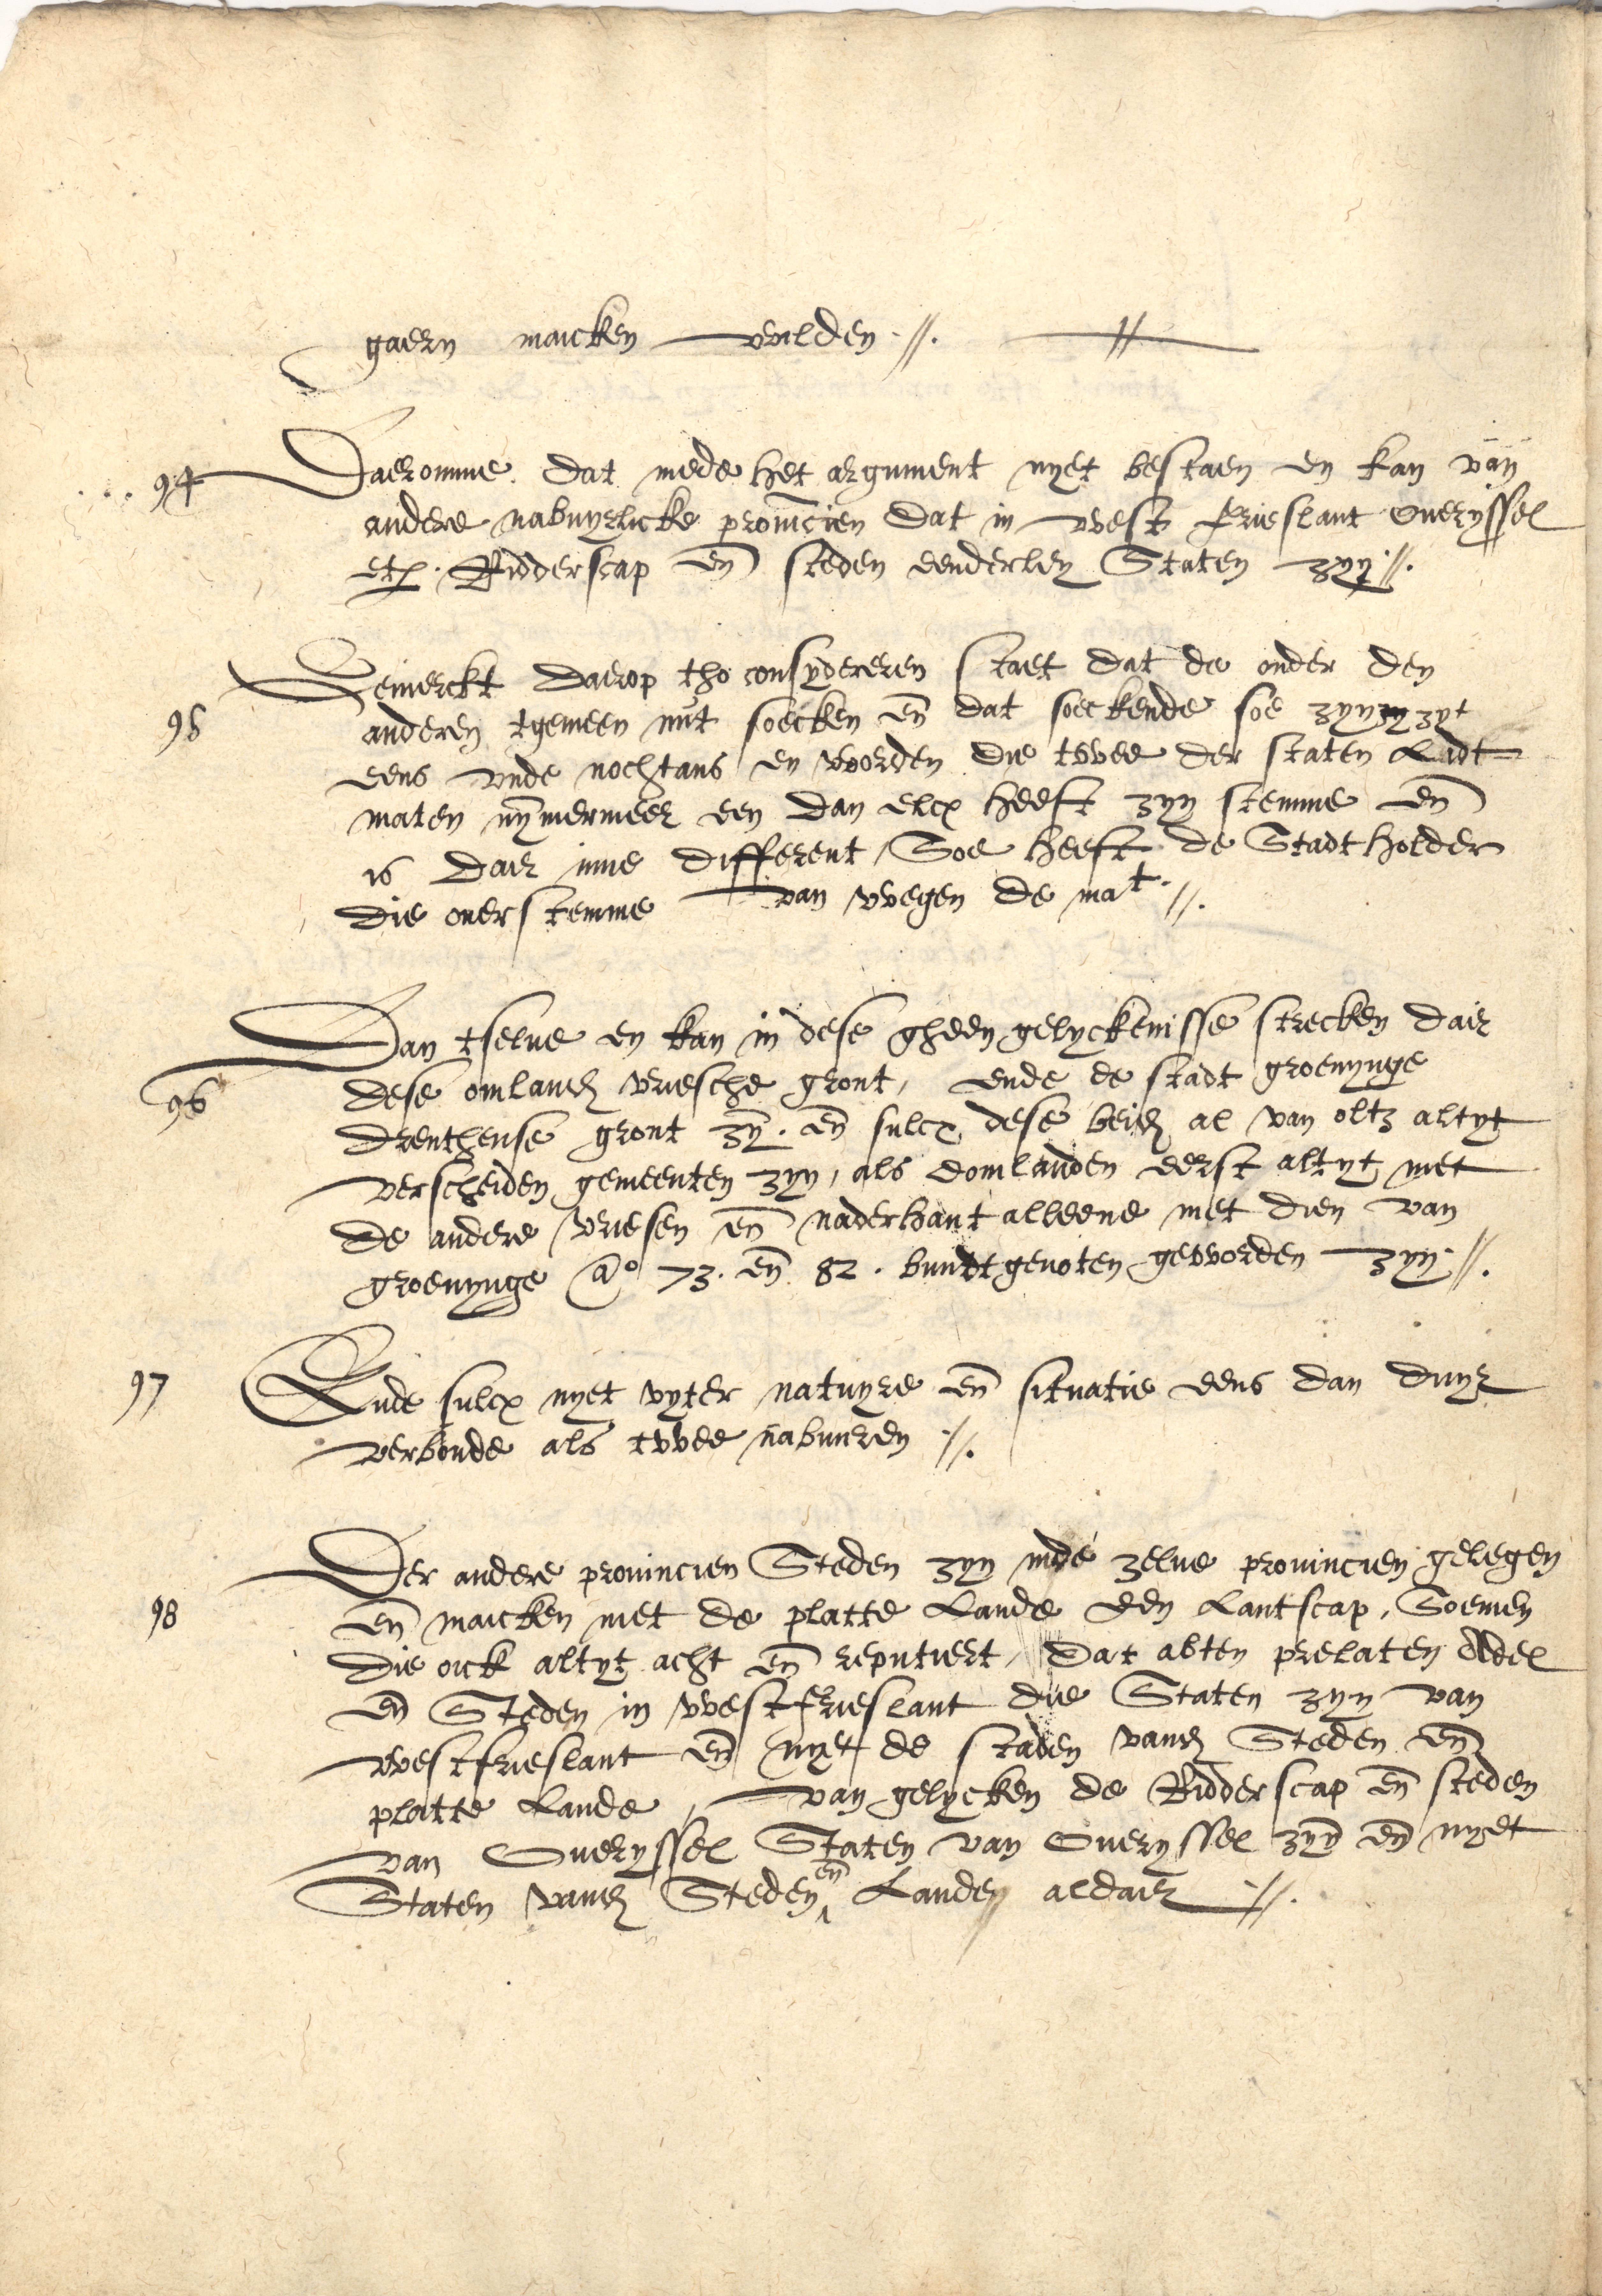 gaern maicken wilden //. //
94 Daeromme dat mede het argument nyet bestaen en kan van
andere nabuyrlicke provincien dat in west frieslant Overyssel
etc. Ridderscap en̄ steden eenderley Staten zyn //.
Gemerckt daerop tho consydereren staet dat de onder den
95 anderen tgemeen nut soecken en̄ dat soeckende soe zyn zy zyt
eens unde nochtans en worden die twee der staten Lidt=
maten nȳmermeer een dan elcx heeft zyn stemme en̄
is dair inne different / Soe heeft de Stadtholder
die overstemme van wegen de mat. //.
Dan tselve en kan in dese gheen gelyckenisse strecken dair
96 dese omland vriesche gront, ende de stadt groenynge
drenthense gront zȳ. en̄ sulcx dese beid al van oltz altyt
verscheiden gemeenten zyn, als domlanden eerst altyt met
de andere vriesen en̄ naderhant alleene met dien van
groenynge ao 73. en̄ 82. bundtgenoten geworden zyn //.
97 Ende sulcx nyet uyter natuyre en̄ situatie eens dan duyr
verbonde als twee nabueren //.
Der andere provincien Steden zyn inde zelve provincien gelegen
98 en̄ maicken met de platte Lande een Lantscap, Soemen
die oick altyt acht en̄ reputiert, Dat abten prelaten Edel
en̄ Steden in westfrieslant die Staten zyn van
westfrieslant en̄ nyet de staden vand Steden en̄
platte Lande, van gelycken de Ridderscap en̄ steden
van Overyssel Staten van Overyssel zyn en̄ nyet
Staten vand Steden en̄ Landen aldair //.